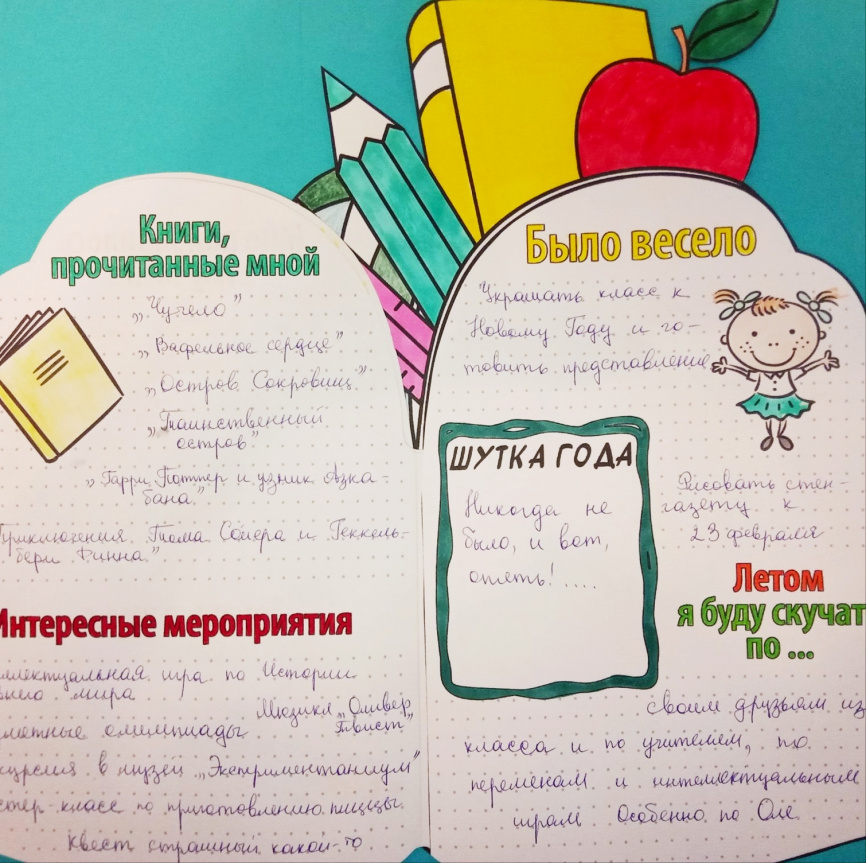 Книги,
прочитанные мной
„Чучело”
„Вафельное сердце”
„Остров Сокровищ”
„Таинственный
остров”
„Гарри Поттер и узник Азка-
бана.”
Приключения Тома Сойера и Геккель-
бери Финна”
Интересные мероприятия
ллектуальная игра по Истории
мира
Мюзикл „Оливер
Твист”
метные олимпиады
курсия в музей „Экспериментаниум”
стер-класс по приготовлению пиццы.
Квест страшный какой-то
Было весело
Украшать класс к
Новому Году и го-
товить представление
ШУТКА ГОДА
Никогда не
было, и вот,
опять!....
Рисовать стен-
газету к
23 февраля
Летом
я буду скучат
по ...
своим друзьям из
класса и по учителем, по
переменам и интеллектуальным
играм Особенно по Оле